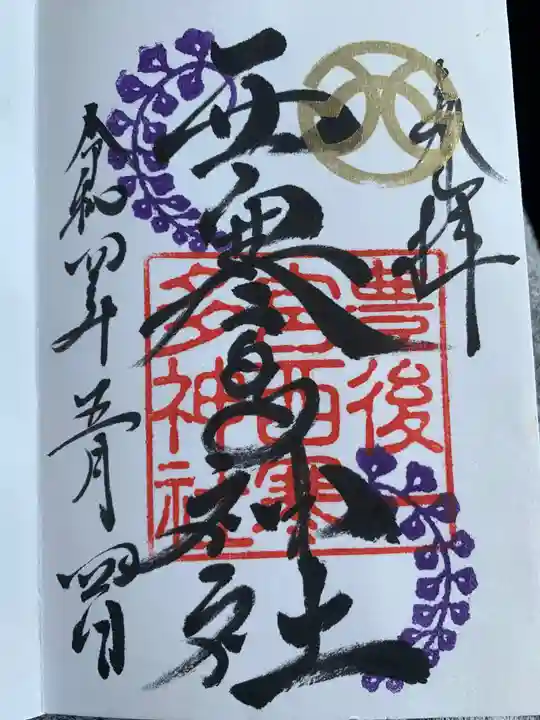 奉拝
西寒多神社
豊後
一宮西寒
多神社
令和四年五月四日